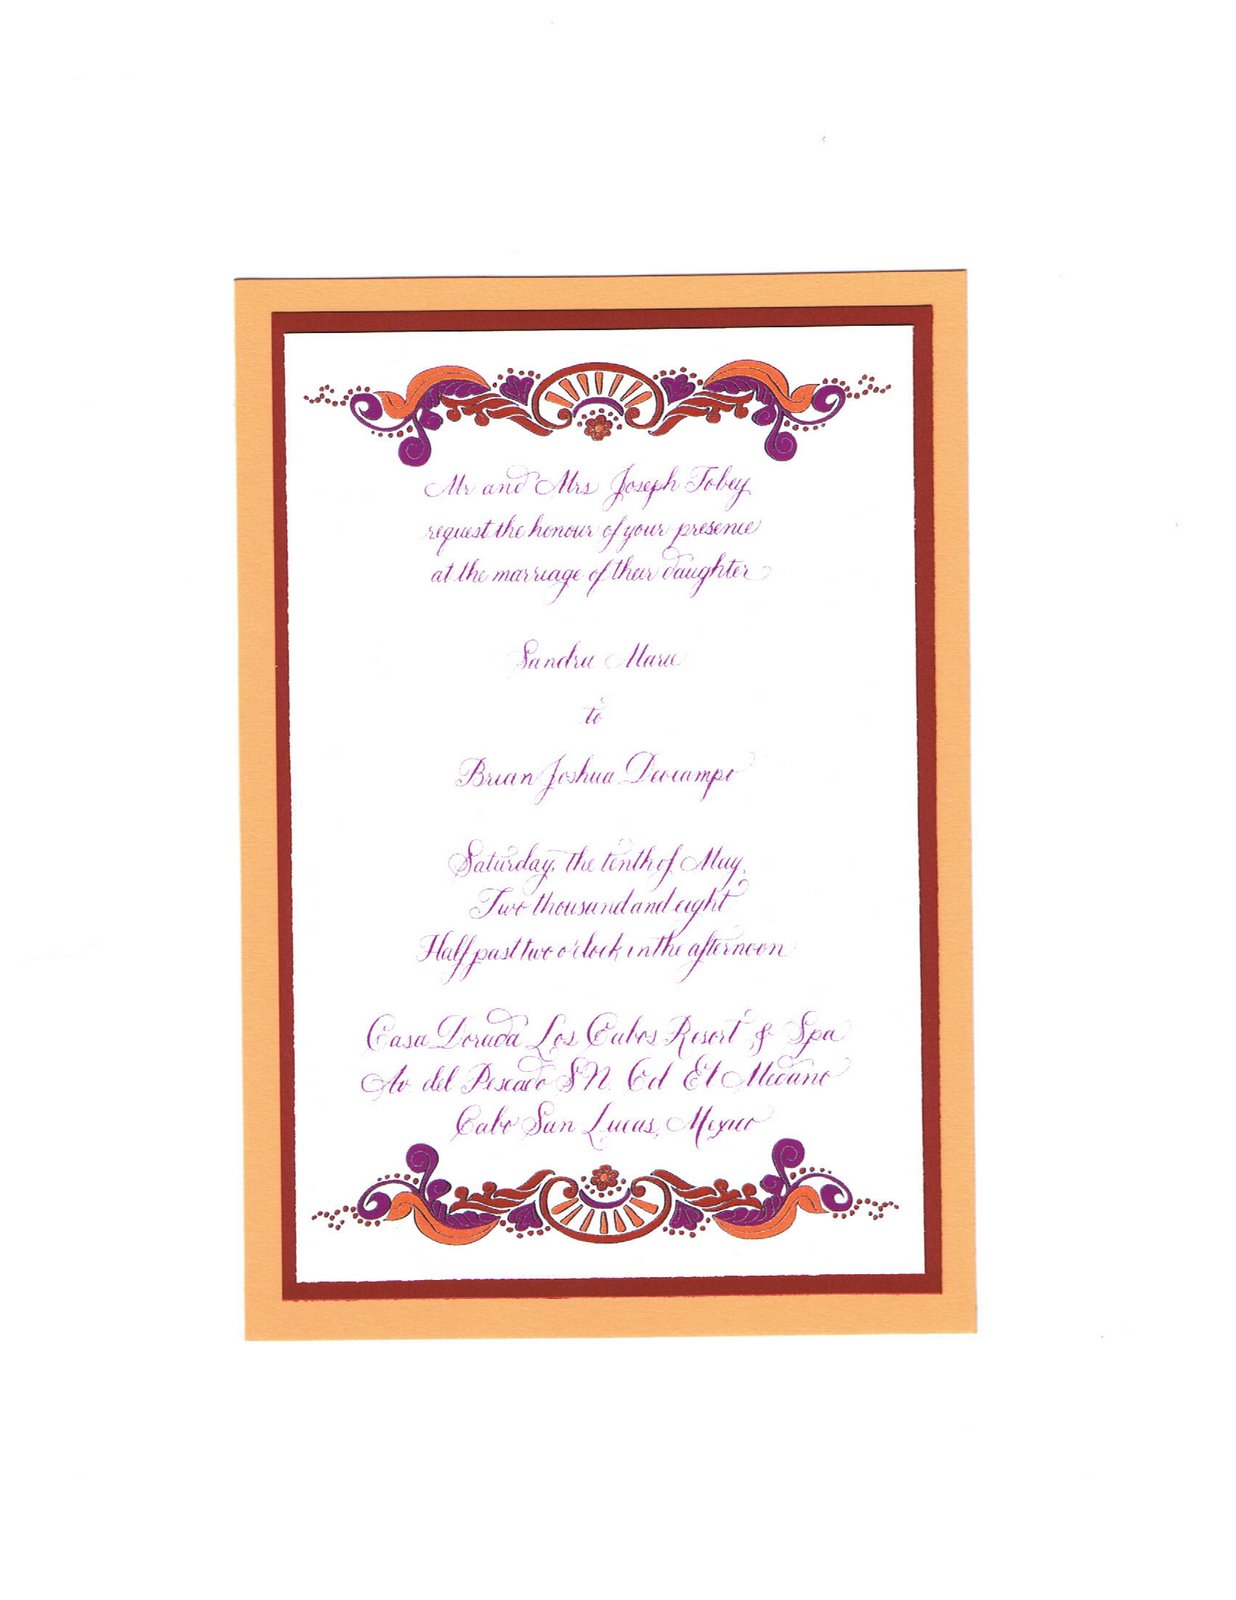 Mr and Mrs Joseph Tobey
request the honour of your presence
at the marriage of their daughter
Sandra Marie
to
Brian Joshua Deocampo
Saturday, the tenth of May,
Two thousand and eight
Half past two o'clock in the afternoon
Casa Dorada Los Cabos Resort & Spa
Av. del Pescado SN. Col El Medano
Cabo San Lucas, Mexico